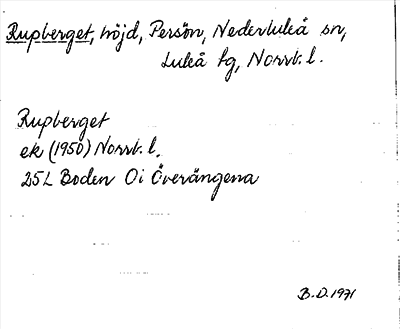 Rupberget, höjd, Persön, Nederluleå sn,
Luleå tg, Norrb. l.
Rupberget
ek (1950) Norrb. l.
25L Boden Oi Överängena
B.D. 1971